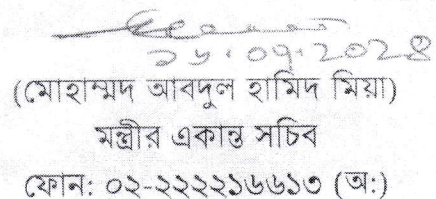 ২৮.০৭.২০২৪
(মোহাম্মদ আবদুল হামিদ মিয়া)
মন্ত্রীর একান্ত সচিব
ফোন: ০২-২২২২১৬৬১৩ (অ:)